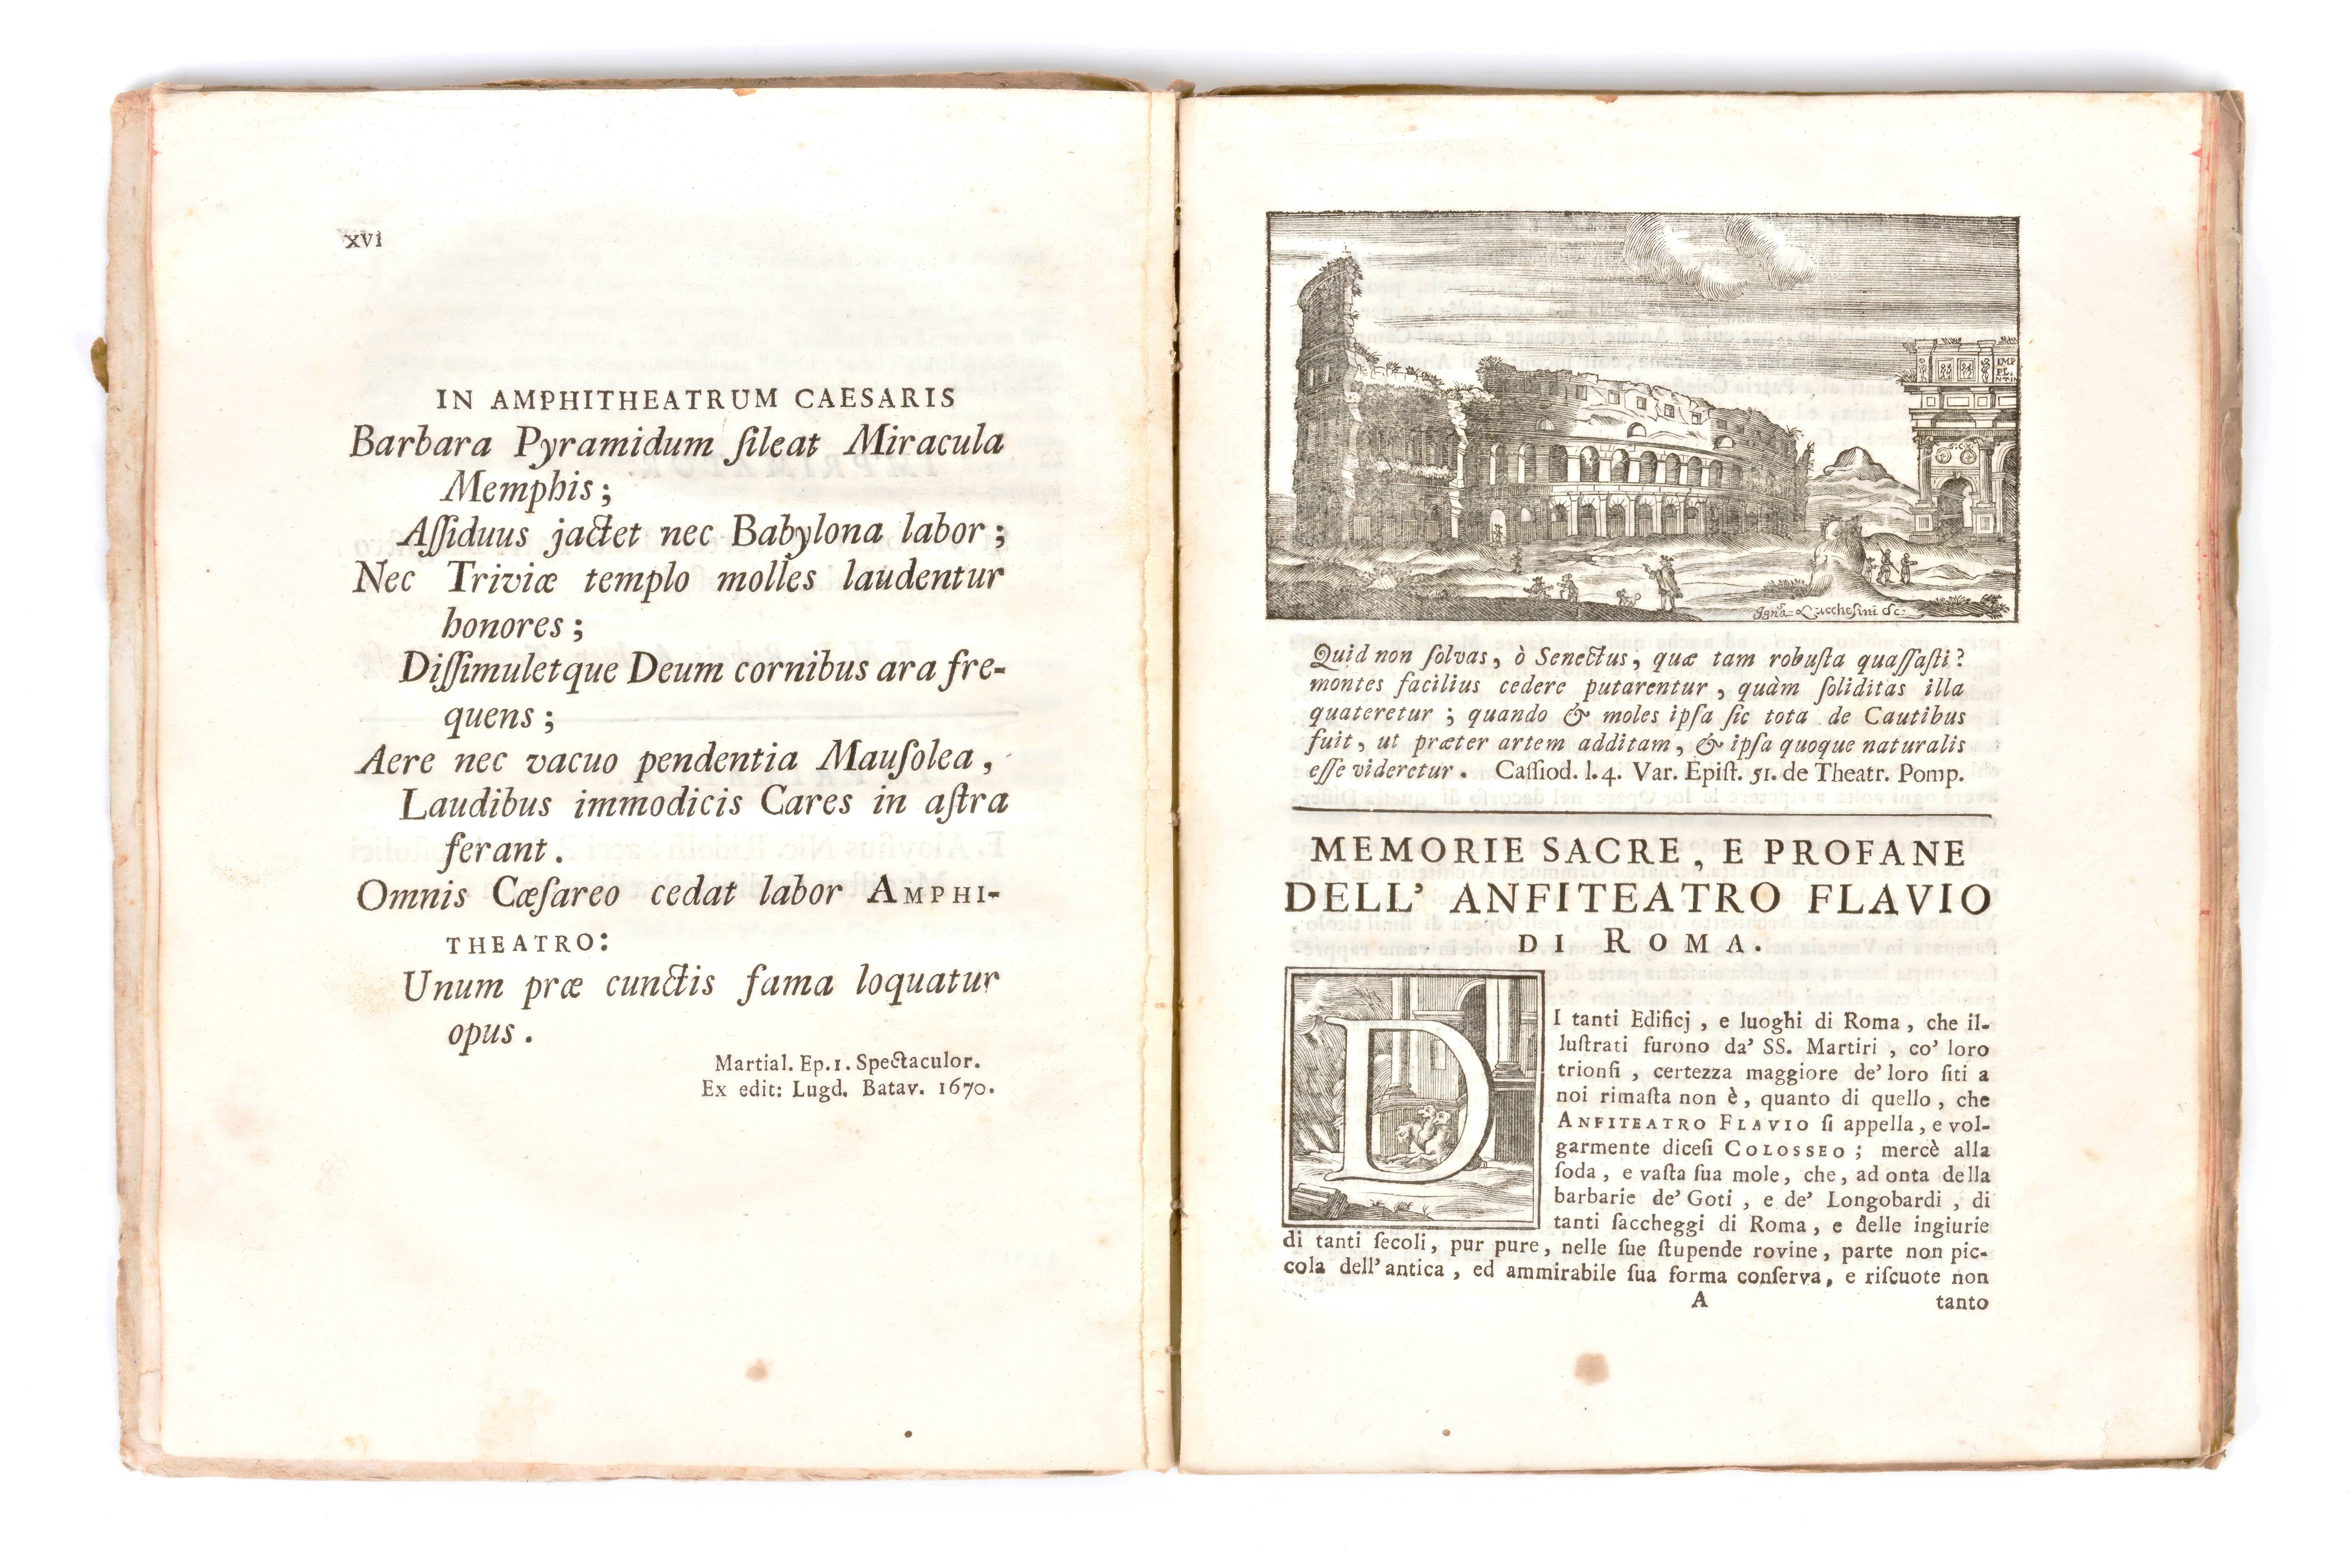 xvi
IN AMPHITHEATRUM CAESARIS
Barbara Pyramidum ſileat Miracula
Memphis;
Aſſiduus jactet nec Babylona labor;
Nec Triviæ templo molles laudentur
honores;
Diſſimuletque Deum cornibus ara fre-
quens;
Aere nec vacuo pendentia Mauſolea,
Laudibus immodicis Cares in aſtra
ferant.
Omnis Cæſareo cedat labor AMPHI-
THEATRO:
Unum præ cunctis fama loquatur
opus.
Martial. Ep. 1. Spectaculor.
Ex edit: Lugd. Batav. 1670.
IMP
Ignã. Lucchesini Sc:
Quid non ſolvas, ò Senectus, quæ tam robuſta quaſſaſti?
montes facilius cedere putarentur, quàm ſoliditas illa
quateretur; quando & moles ipſa ſic tota de Cautibus
fuit, ut præter artem additam, & ipſa quoque naturalis
eſſe videretur. Caſſiod. l. 4. Var. Epiſt. 51. de Theatr. Pomp.
MEMORIE SACRE, E PROFANE
DELL' ANFITEATRO FLAVIO
DI ROMA.
DI tanti Edificj, e luoghi di Roma, che il-
luſtrati furono da' SS. Martiri, co' loro
trionfi, certezza maggiore de' loro ſiti a
noi rimaſta non è, quanto di quello, che
ANFITEATRO FLAVIO ſi appella, e vol-
garmente diceſi COLOSSEO; mercè alla
ſoda, e vaſta ſua mole, che, ad onta della
barbarie de' Goti, e de' Longobardi, di
tanti ſaccheggi di Roma, e delle ingiurie
di tanti ſecoli, pur pure, nelle ſue ſtupende rovine, parte non pic-
cola dell' antica, ed ammirabile ſua forma conſerva, e riſcuote non
A
tanto